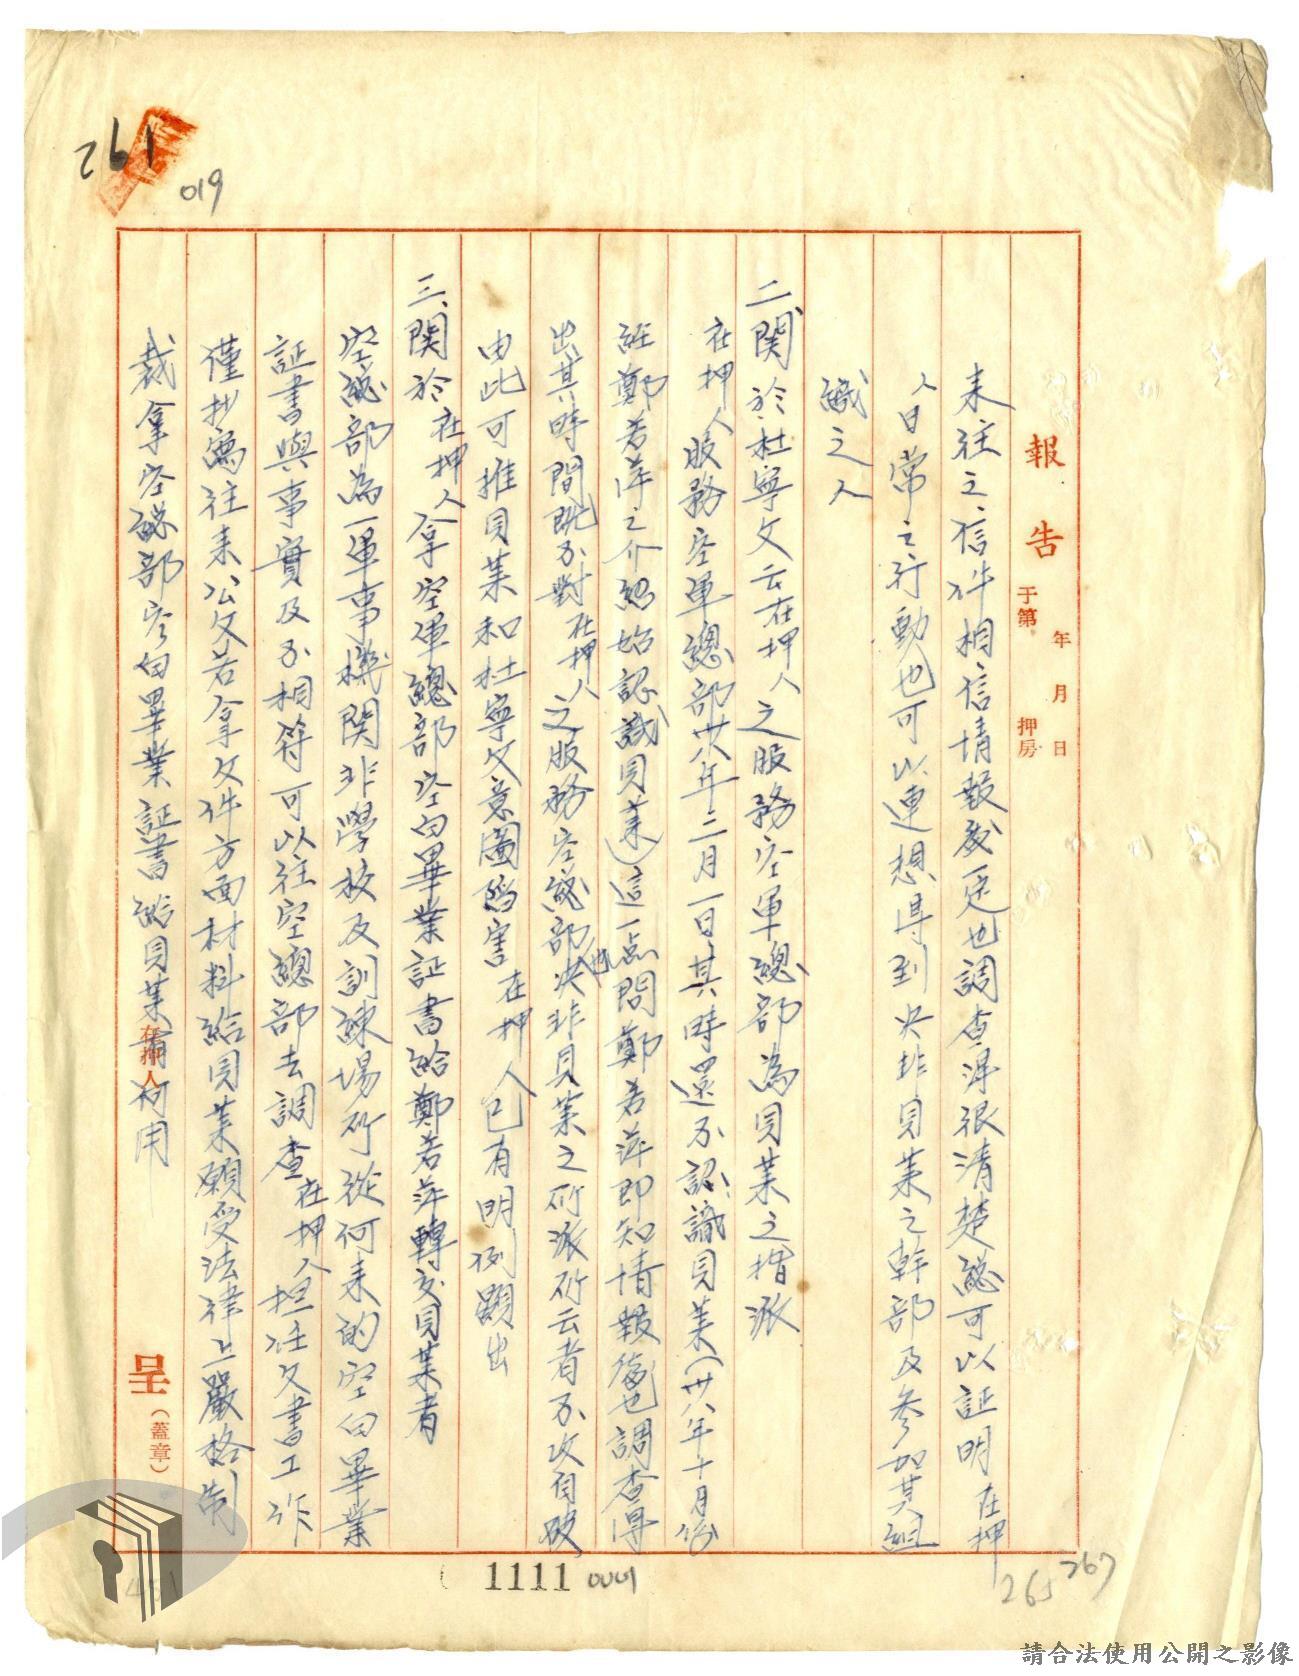 報告
年月日
于第押房
来往之信件相信情報處一定也調查得很清楚總可以証明在押
人日常之行動也可以連想得到决非員某之幹部及参加其組
織之人
二、関於杜寧文云在押人之服務空軍總部為員某之指派
在押人服務空軍總部卅八年二月一日其時還不認識員某(卅八年十月份
經鄭若萍之介紹始認識員某)這一点問鄭若萍即知情報處也調查得
出其時間既不對在押人之服務空總部也决非員某之所派所云者不攻自破
由此可推員某和杜寧文意圖陷害在押人已有明例顯出
三、関於在押人拿空軍總部空白畢業証書給鄭若萍轉交員某者
空總部為一軍事機関非學校及訓練場所從何来的空白畢業
証書與事實及不相符可以往空總部去調查在押人担任文書工作
僅抄寫往来公文若拿文件方面材料給員某願受法律上嚴格制
裁拿空總部空白畢業証書給員某有何用
在押人
呈(蓋章)
261
019
451
1111
0001
265
267
請合法使用公開之影像